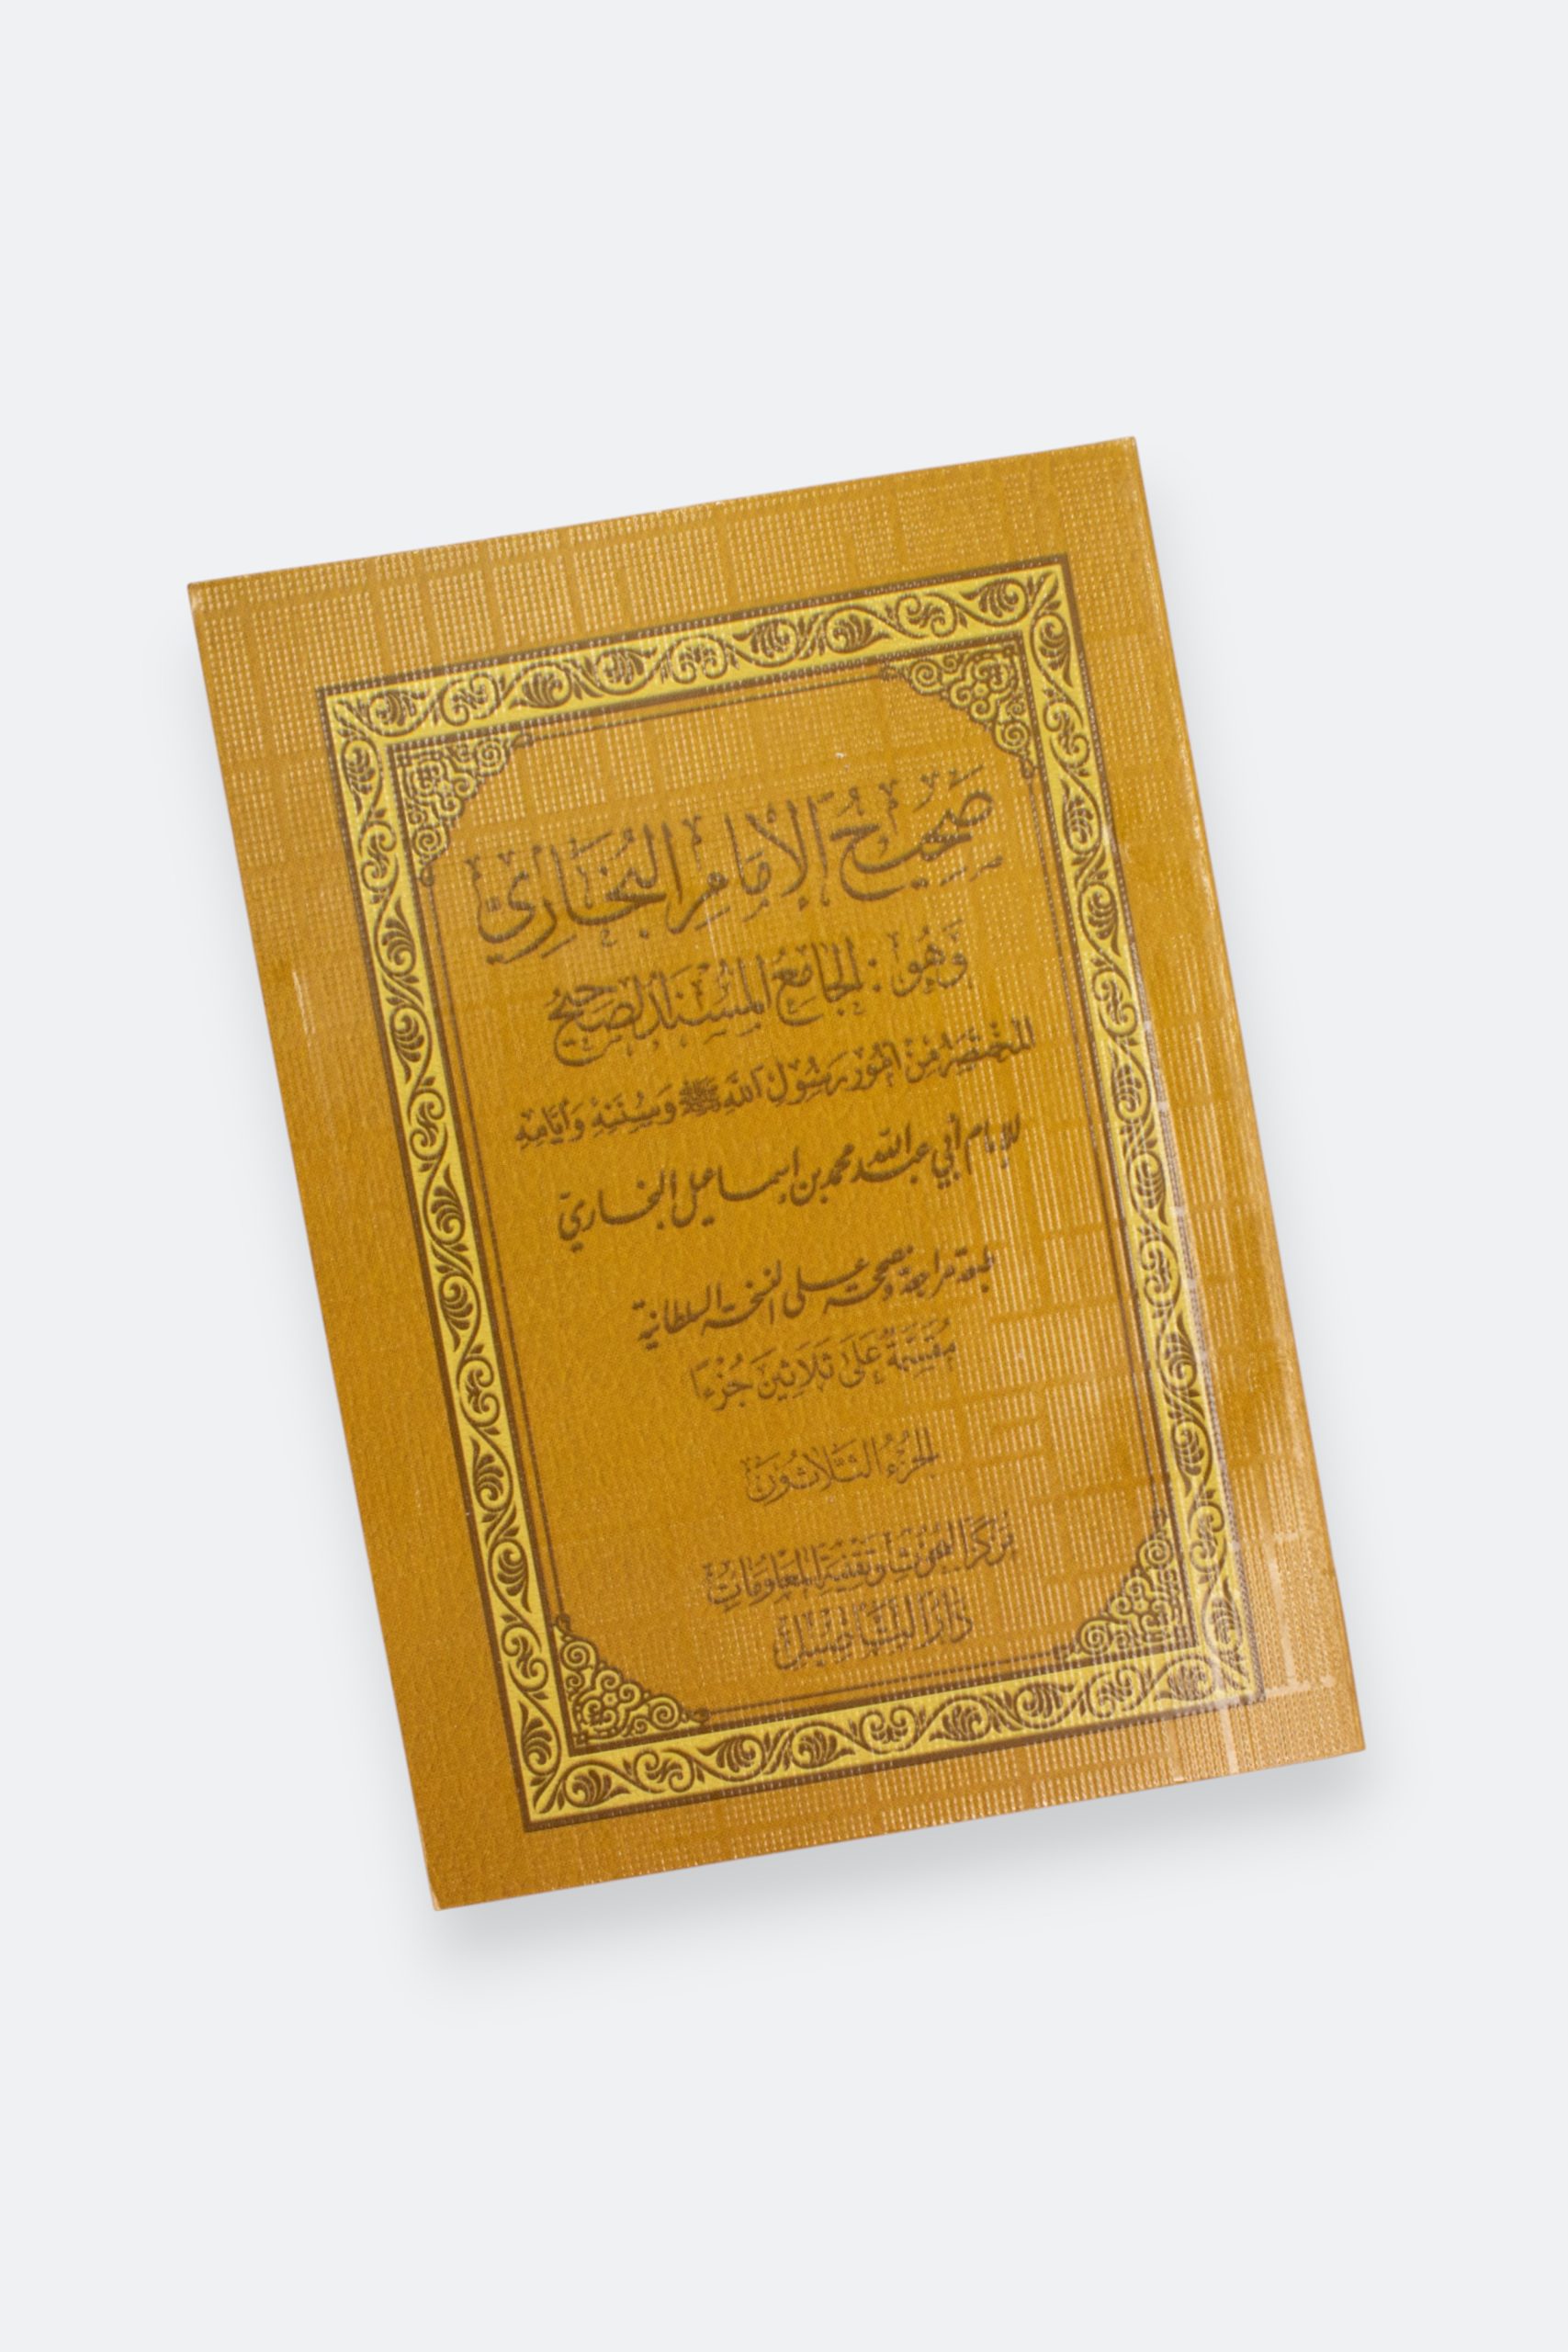 صَحِيحُ الإِمَامِ البُخَارِيِّ
وَهُوَ : الجَامِعُ المُسْنَدُ الصَّحِيحُ
المُخْتَصَرُ مِنْ أُمُورِ رَسُولِ اللَّهِ ﷺ وَسُنَنِهِ وَأَيَّامِهِ
للإمام أبي عبد الله محمد بن إسماعيل البخاريّ
طبعة مراجعة ومصححة على النسخة السلطانية
مُقَسَّمَةٌ عَلَى ثَلَاثِينَ جُزْءًا
الجُزْءُ الثَّلَاثُونَ
مَرْكَزُ البُحُوثِ وَتَقْنِيَةِ المَعْلُومَاتِ
دَارُ التَّأْصِيلِ